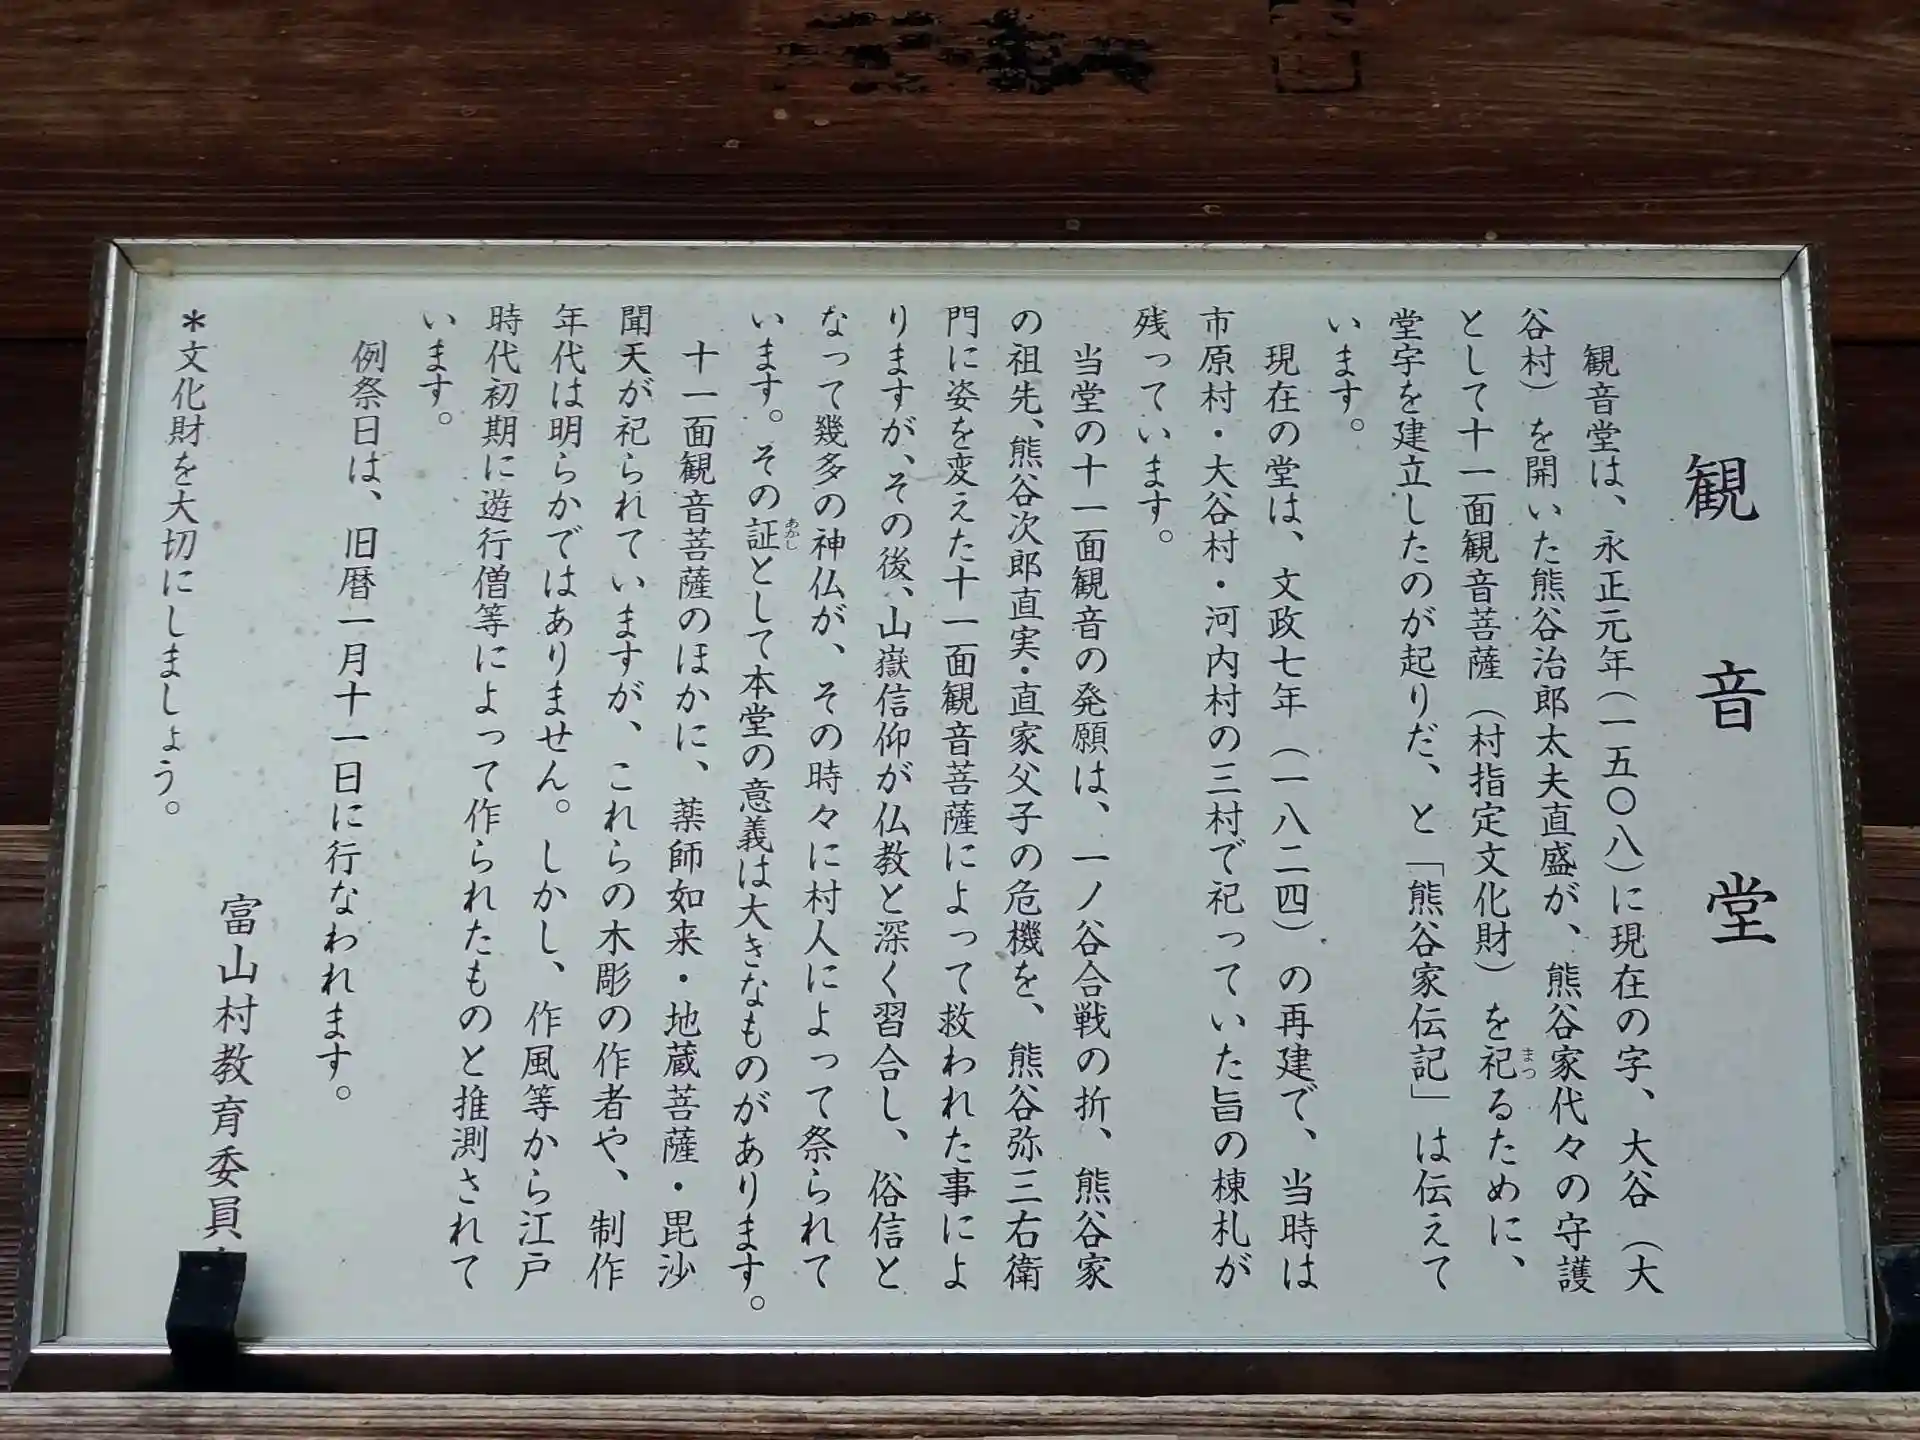 観音堂
観音堂は、永正元年(一五〇八)に現在の字、大谷(大
谷村)を開いた熊谷治郎太夫直盛が、熊谷家代々の守護
として十一面観音菩薩(村指定文化財)を祀るために、
堂宇を建立したのが起りだ、と「熊谷家伝記」は伝えて
います。
現在の堂は、文政七年(一八二四)の再建で、当時は
市原村・大谷村・河内村の三村で祀っていた旨の棟札が
残っています。
当堂の十一面観音の発願は、一ノ谷合戦の折、熊谷家
の祖先、熊谷次郎直実・直家父子の危機を、熊谷弥三右衛
門に姿を変えた十一面観音菩薩によって救われた事によ
りますが、その後、山嶽信仰が仏教と深く習合し、俗信と
なって幾多の神仏が、その時々に村人によって祭られて
います。その証として本堂の意義は大きなものがあります。
十一面観音菩薩のほかに、薬師如来・地蔵菩薩・毘沙
聞天が祀られていますが、これらの木彫の作者や、制作
年代は明らかではありません。しかし、作風等から江戸
時代初期に遊行僧等によって作られたものと推測されて
います。
例祭日は、旧暦一月十一日に行なわれます。
富山村教育委員
*文化財を大切にしましょう。